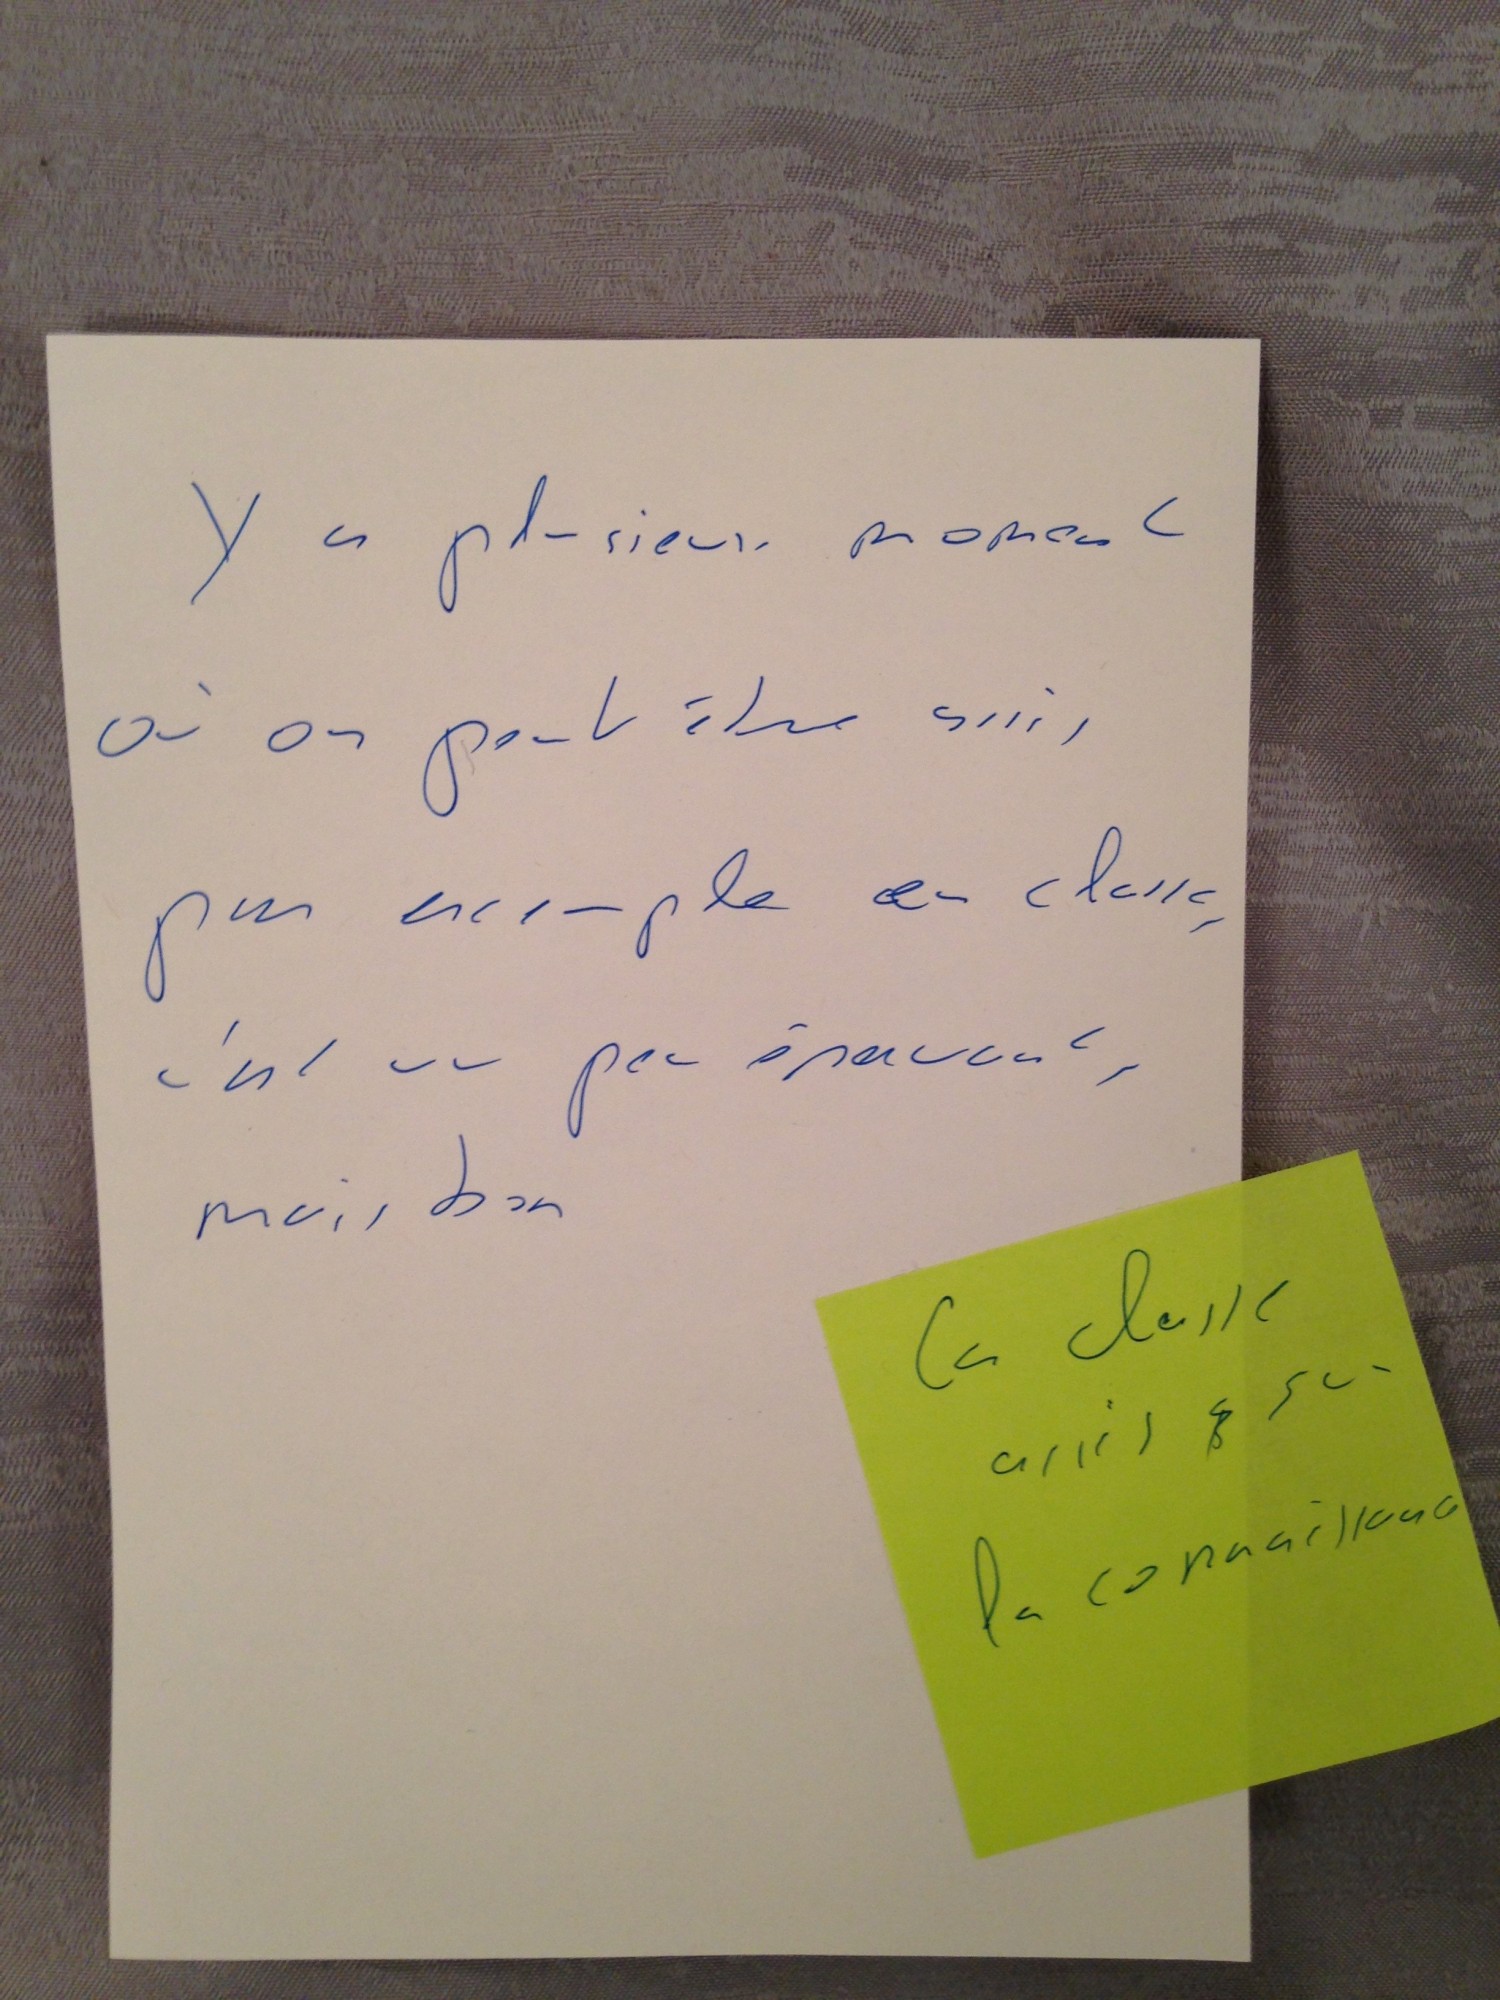 Y a plusieurs moment
où on peut être assis,
par exemple en classe,
c'est un peu éprouvant,
mais bon
La classe
assis sur
la connaissance